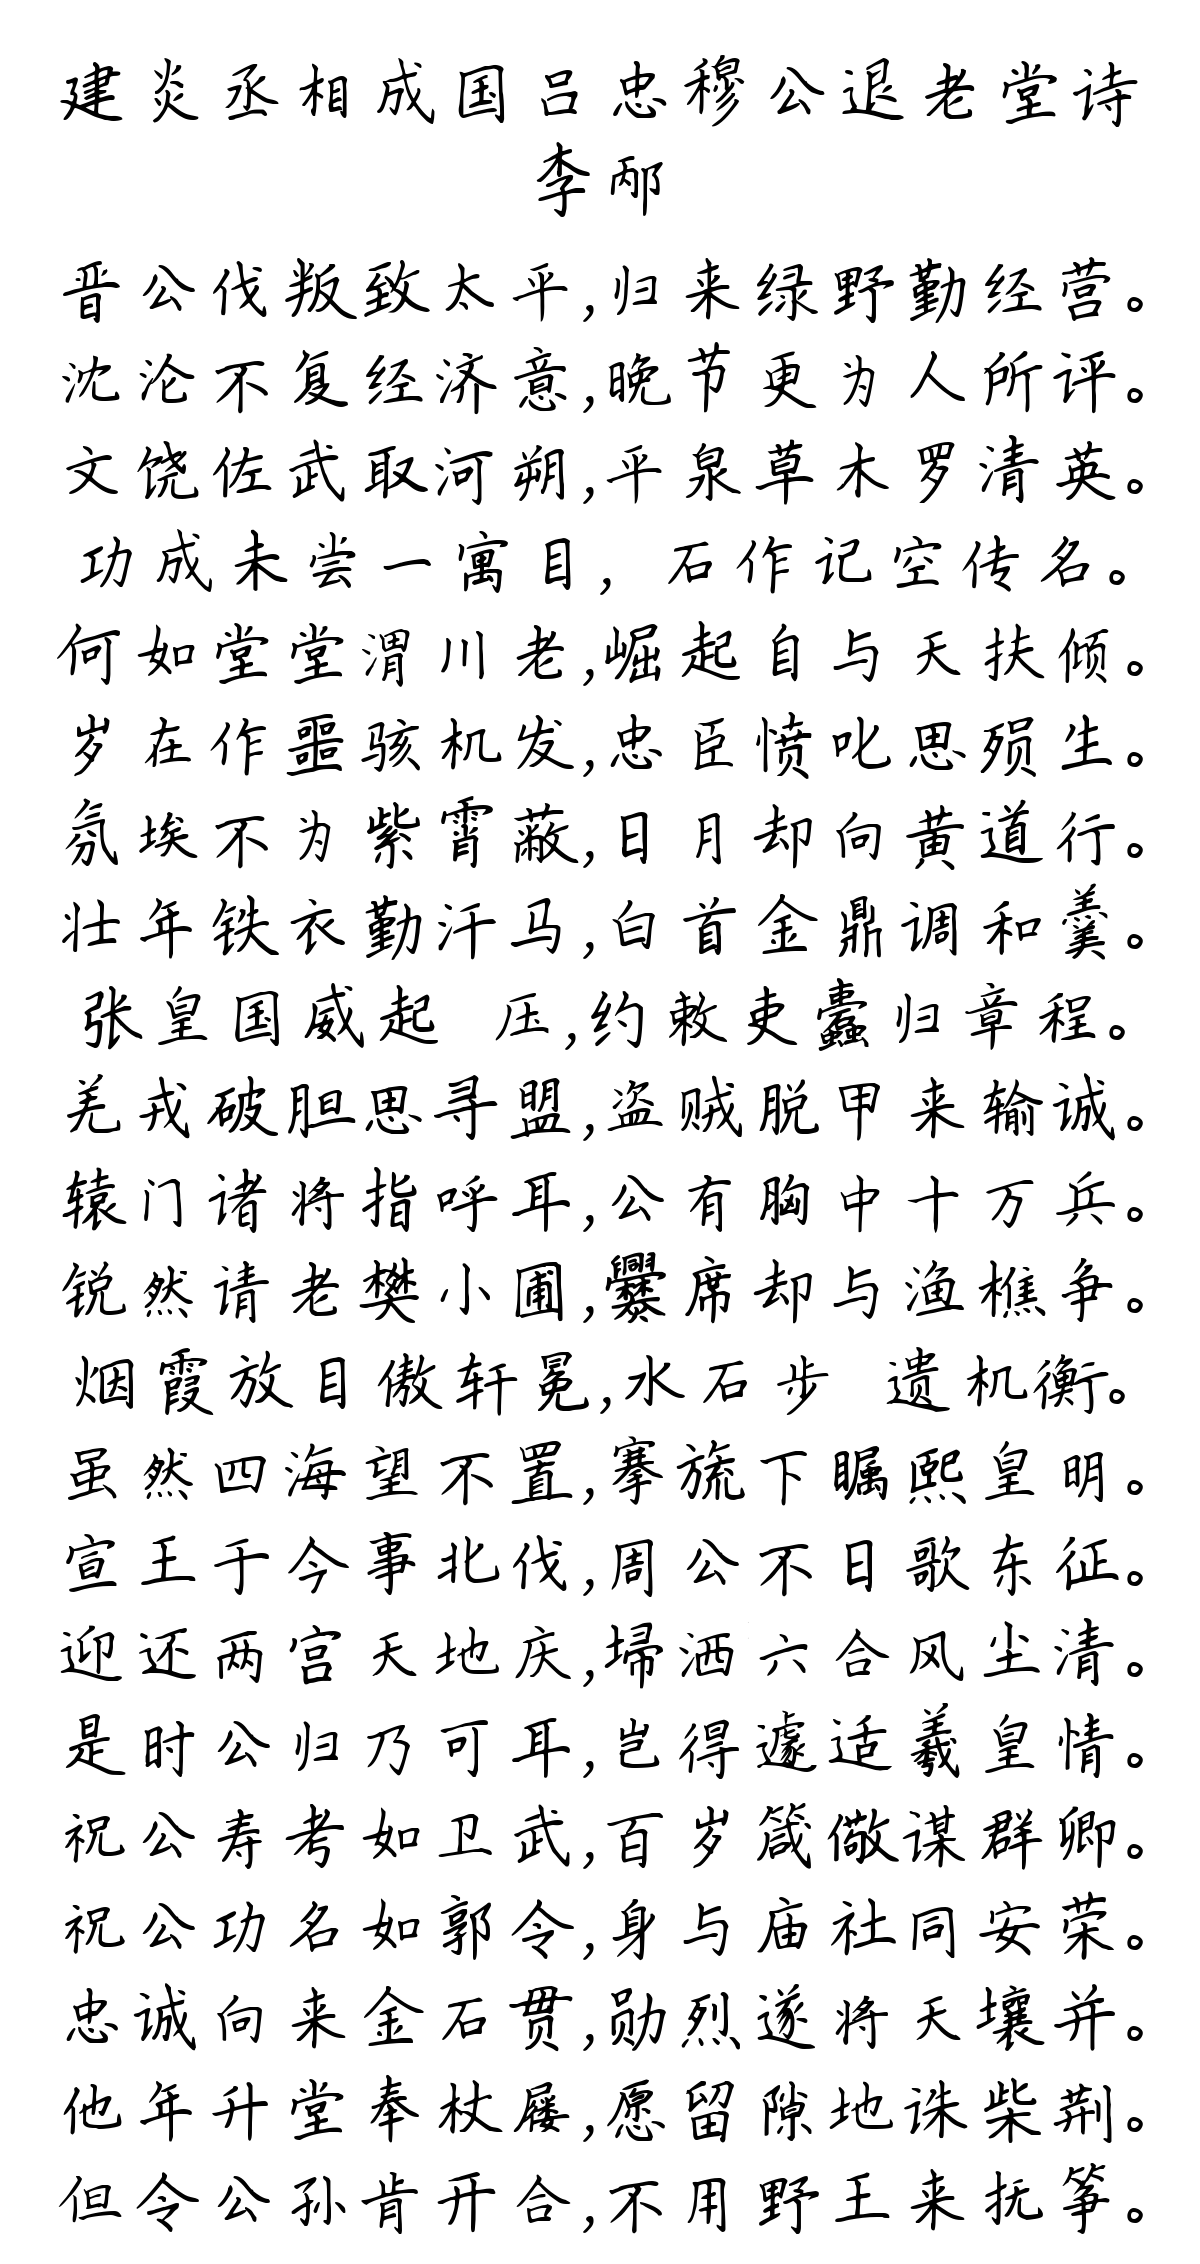 建炎丞相成国吕忠穆公退老堂诗
李邴
晋公伐叛致太平,归来绿野勤经营。
沈沦不复经济意,晚节更为人所评。
文饶佐武取河朔,平泉草木罗清英。
功成未尝一寓目,石作记空传名。
何如堂堂渭川老,崛起自与天扶倾。
岁在作噩骇机发,忠臣愤叱思殒生。
氛埃不为紫霄蔽,日月却向黄道行。
壮年铁衣勤汗马,白首金鼎调和羹。
张皇国威起 压,约敕吏蠹归章程。
羌戎破胆思寻盟,盗贼脱甲来输诚。
辕门诸将指呼耳,公有胸中十万兵。
锐然请老樊小圃,爨席却与渔樵争。
烟霞放目傲轩冕,水石步 遗机衡。
虽然四海望不置,搴旒下瞩熙皇明。
宣王于今事北伐,周公不日歌东征。
迎还两宫天地庆,埽洒六合风尘清。
是时公归乃可耳,岂得遽适羲皇情。
祝公寿考如卫武,百岁箴儆谋群卿。
祝公功名如郭令,身与庙社同安荣。
忠诚向来金石贯,勋烈遂将天壤并。
他年升堂奉杖屦,愿留隙地诛柴荆。
但令公孙肯开合,不用野王来抚筝。